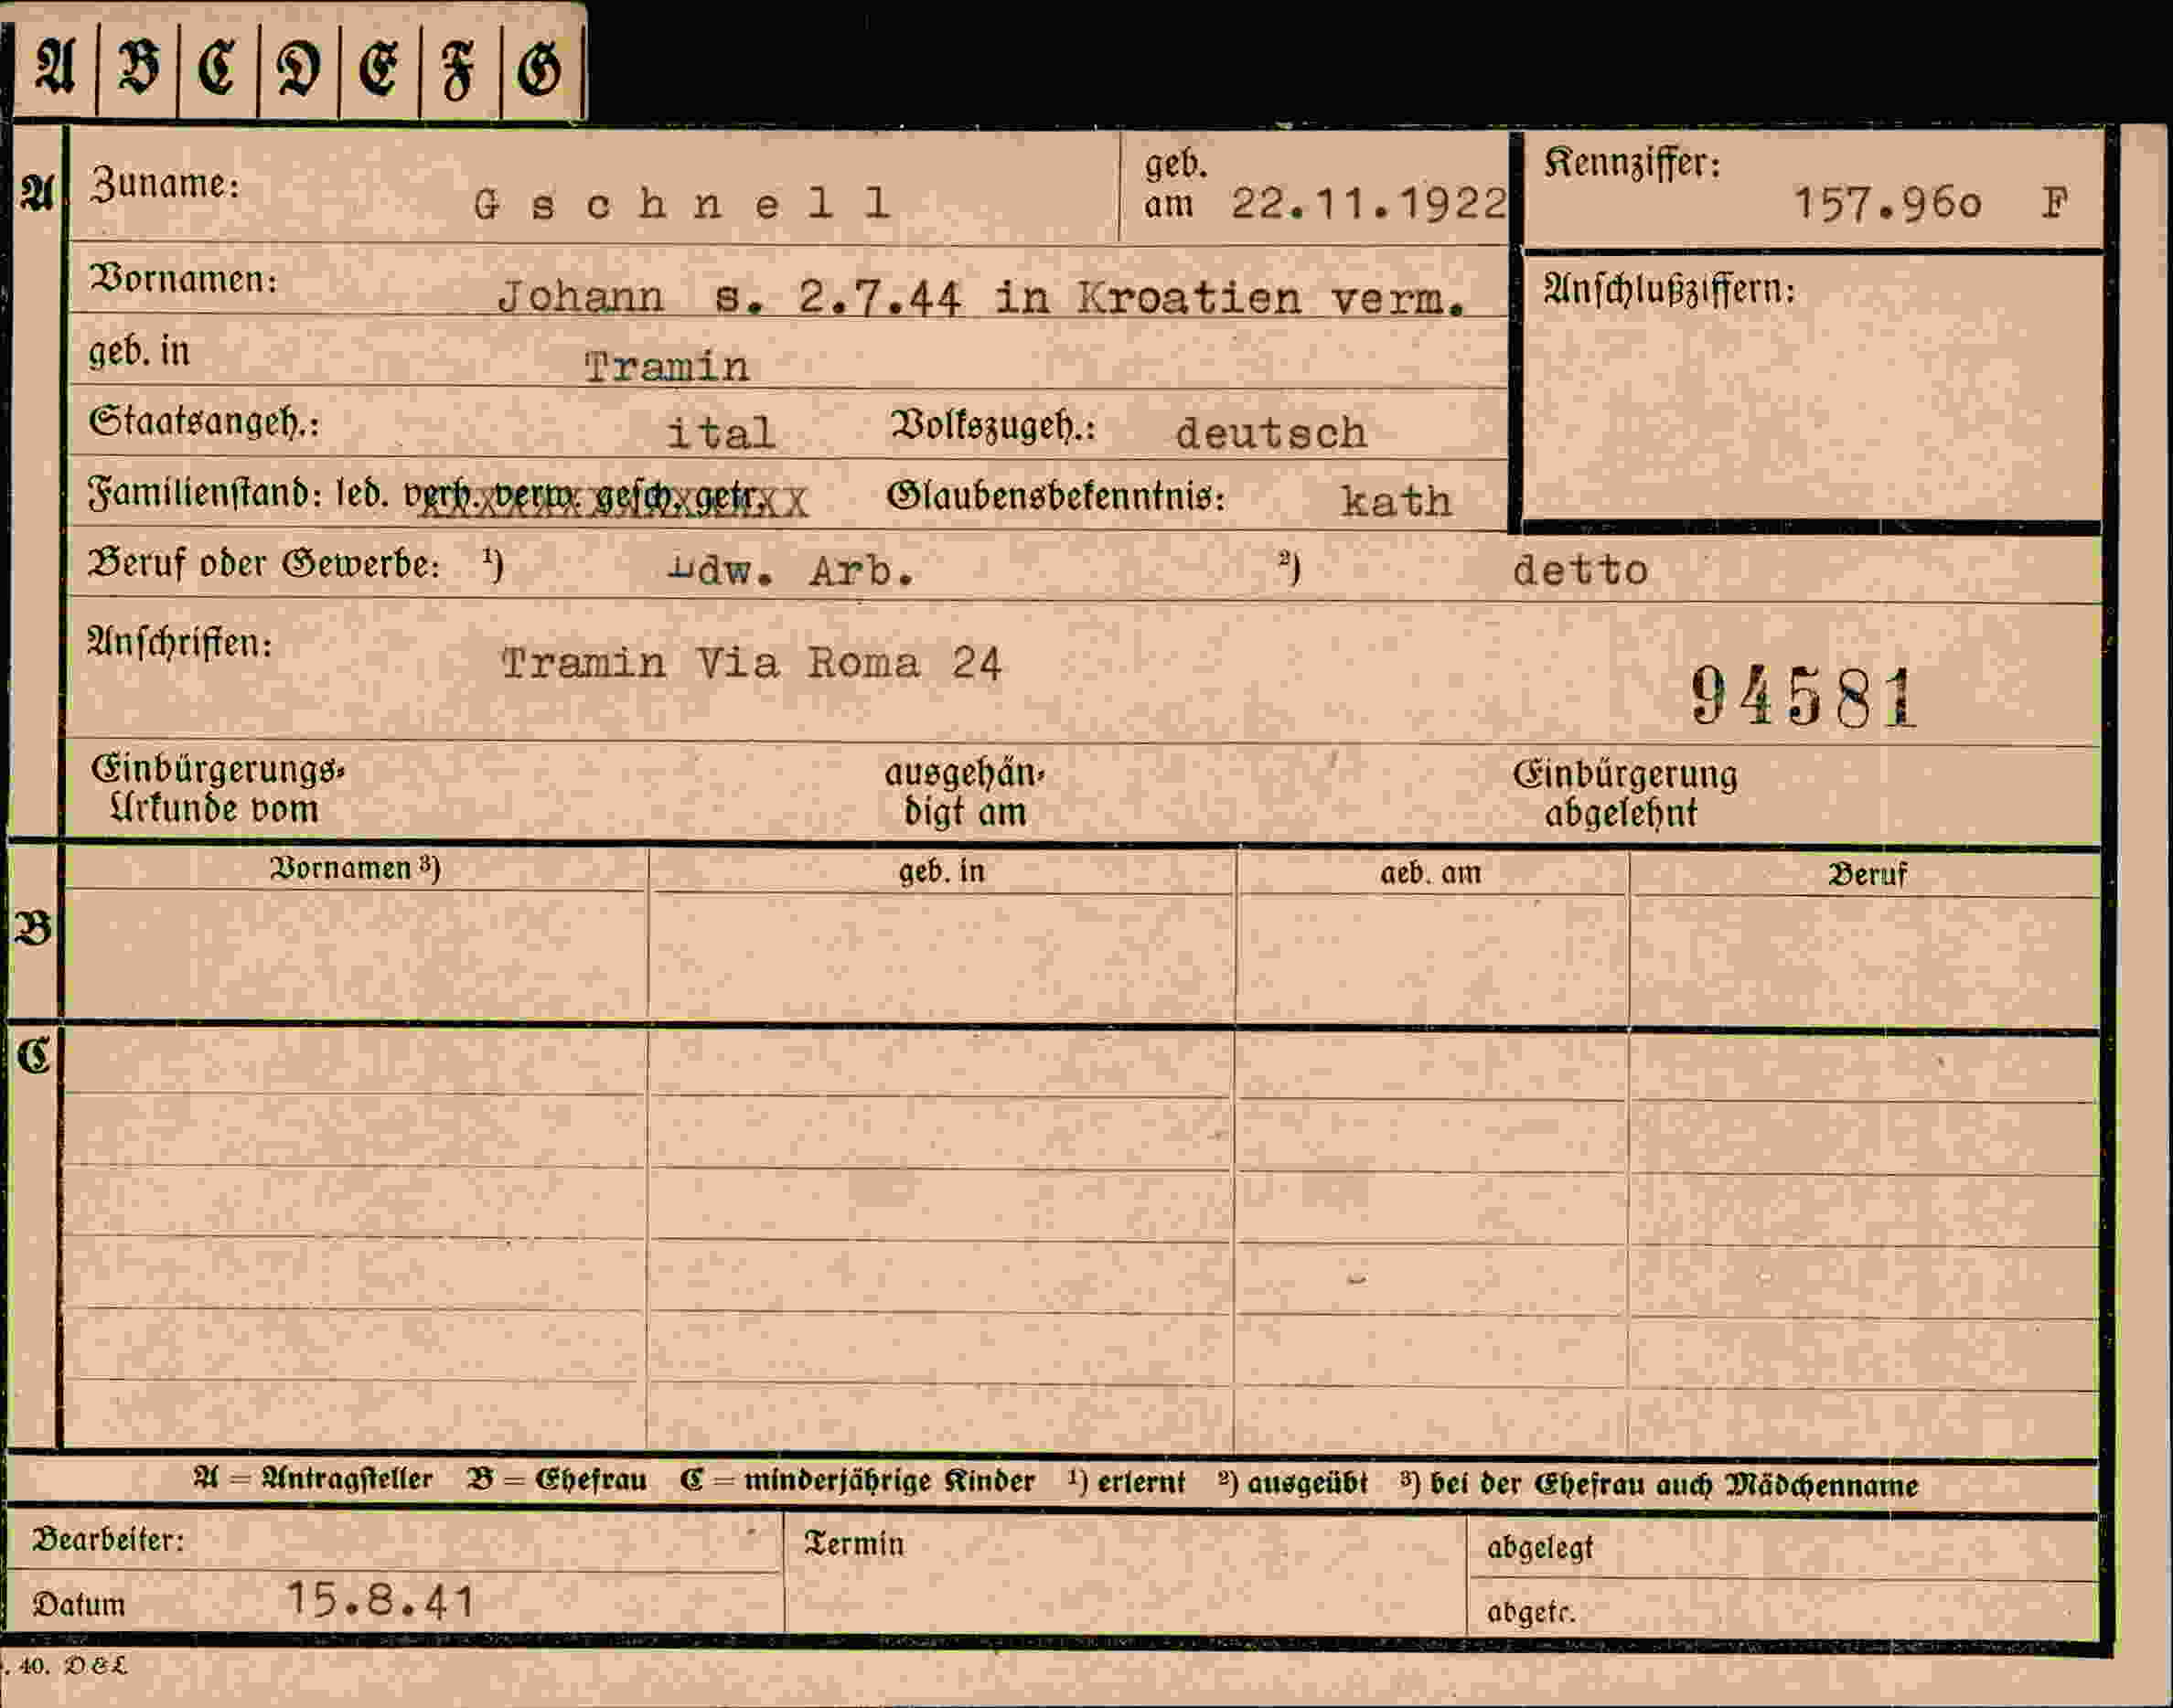 A B C D E F G
A Zuname: Gschnell geb. am 22.11.1922 Kennziffer: 157.96o F
Vornamen: Johann s. 2.7.44 in Kroatien verm. Anschlußziffern:
geb. in Tramin
Staatsangeh.: ital Volkszugeh.: deutsch
Familienstand: led. verh. verw. gesch. getr. Glaubensbekenntnis: kath
Beruf oder Gewerbe: ¹) Ldw. Arb. ²) detto
Anschriften: Tramin Via Roma 24
94581
Einbürgerungs- ausgehän- Einbürgerung
Urkunde vom digt am abgelehnt
Vornamen ³) geb. in geb. am Beruf
B
C
A = Antragsteller B = Ehefrau C = minderjährige Kinder ¹) erlernt ²) ausgeübt ³) bei der Ehefrau auch Mädchenname
Bearbeiter: Termin abgelegt
Datum 15.8.41 abgetr.
. 40. D & L